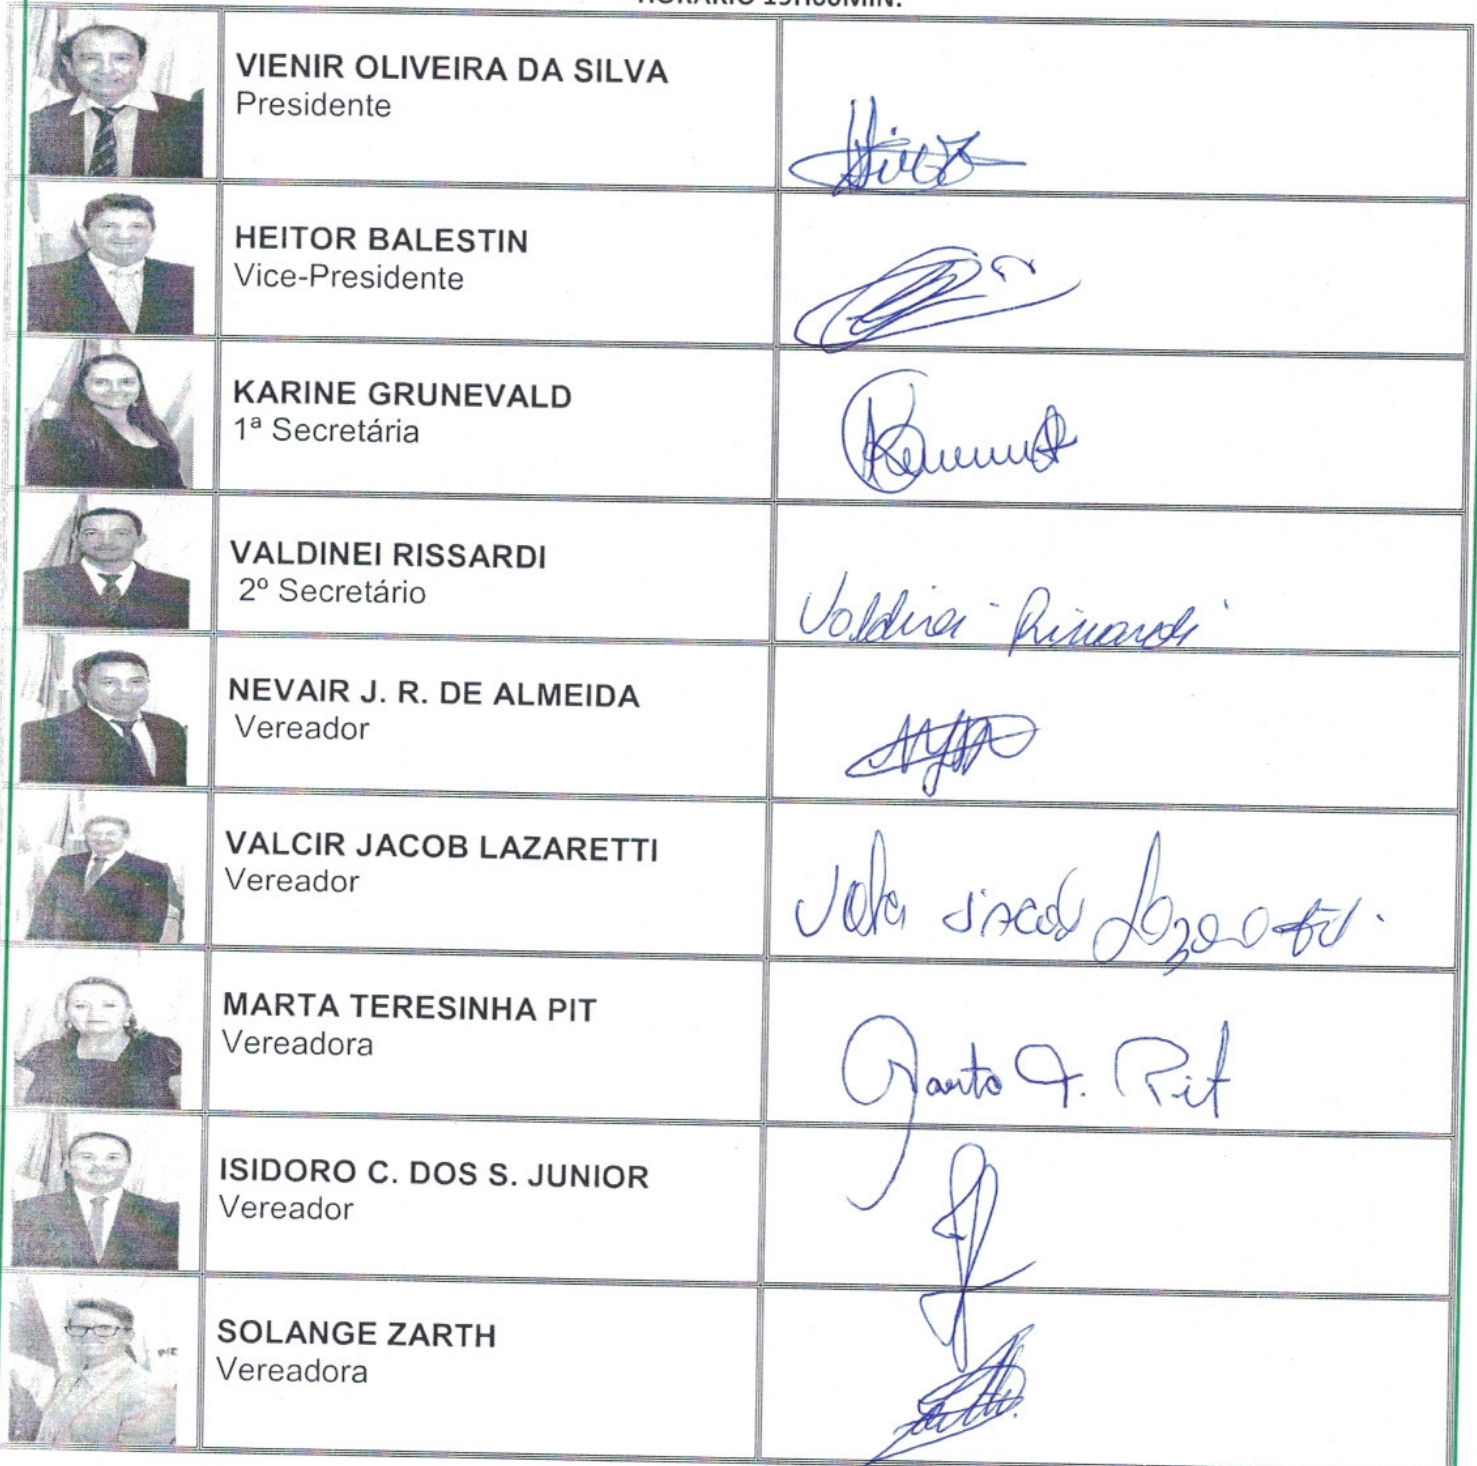 VIENIR OLIVEIRA DA SILVA
Presidente
HEITOR BALESTIN
Vice-Presidente
KARINE GRUNEVALD
1ª Secretária
VALDINEI RISSARDI
2º Secretário
Valdinei Rissardi
NEVAIR J. R. DE ALMEIDA
Vereador
VALCIR JACOB LAZARETTI
Vereador
Jacob
MARTA TERESINHA PIT
Vereadora
Marta T. Pit
ISIDORO C. DOS S. JUNIOR
Vereador
SOLANGE ZARTH
Vereadora